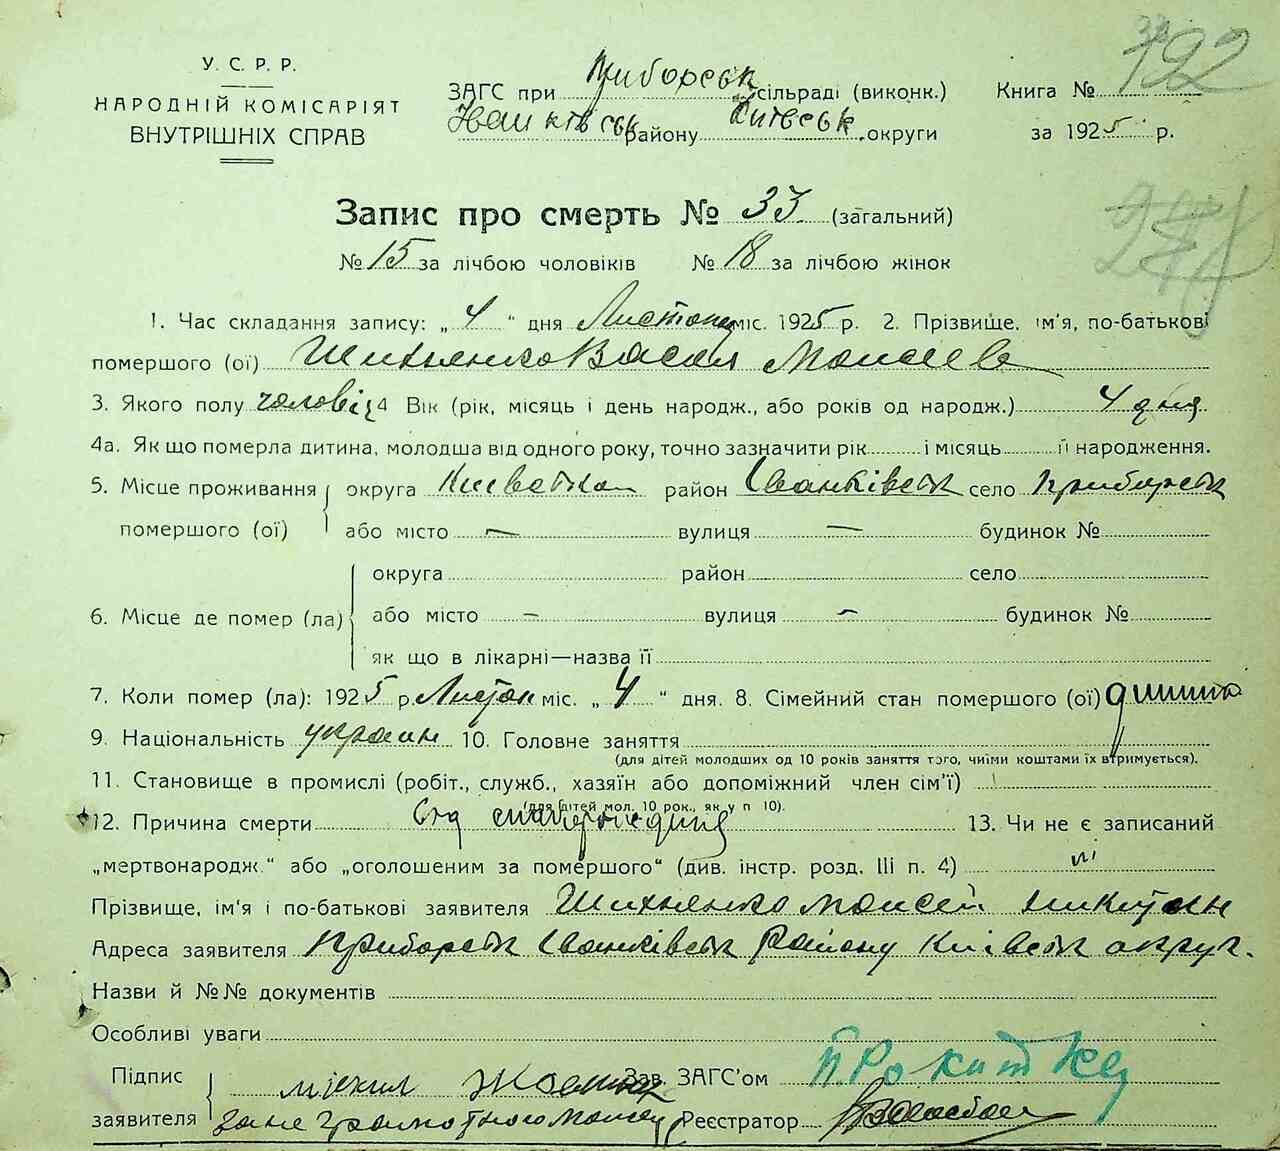 У. С. Р. Р.
НАРОДНІЙ КОМІСАРІЯТ
ВНУТРІШНІХ СПРАВ
ЗАГС при Приборськ сільраді (виконк.)
Іванківськ району Київськ округи
Книга № 192
за 1925 р.
Запис про смерть № 33 (загальний)
№ 15 за лічбою чоловіків № 18 за лічбою жінок
1. Час складання запису: „ 4 “ дня Листопад міс. 1925 р. 2. Прізвище, ім'я, по-батькові
помершого (ої) Василь Моисеев
3. Якого полу чоловіч 4 Вік (рік, місяць і день народж., або років од народж.) 4 дня
4а. Як що померла дитина, молодша від одного року, точно зазначити рік і місяць її народження.
5. Місце проживання округа район Іванківськ село Приборськ
помершого (ої) або місто — вулиця — будинок №
округа район село
6. Місце де помер (ла) або місто – вулиця – будинок №
як що в лікарні—назва її
7. Коли помер (ла): 1925 р. Листоп міс. „ 4 “ дня. 8. Сімейний стан помершого (ої)
9. Національність украин 10. Головне заняття
(для дітей молодших од 10 років заняття того, чиїми коштами їх втримується).
11. Становище в промислі (робіт., служб., хазяїн або допоміжний член сім'ї)
(для дітей мол. 10 рок., як у п 10).
12. Причина смерти 13. Чи не є записаний
„мертвонародж.“ або „оголошеним за помершого“ (див. інстр. розд. III п. 4) ні
Прізвище, ім'я і по-батькові заявителя Моисей Никитин
Адреса заявителя Приборськ Іванківськ Району Київськ округ.
Назви й №№ документів
Особливі уваги
Підпис Зав. ЗАГС'ом
заявителя Реєстратор